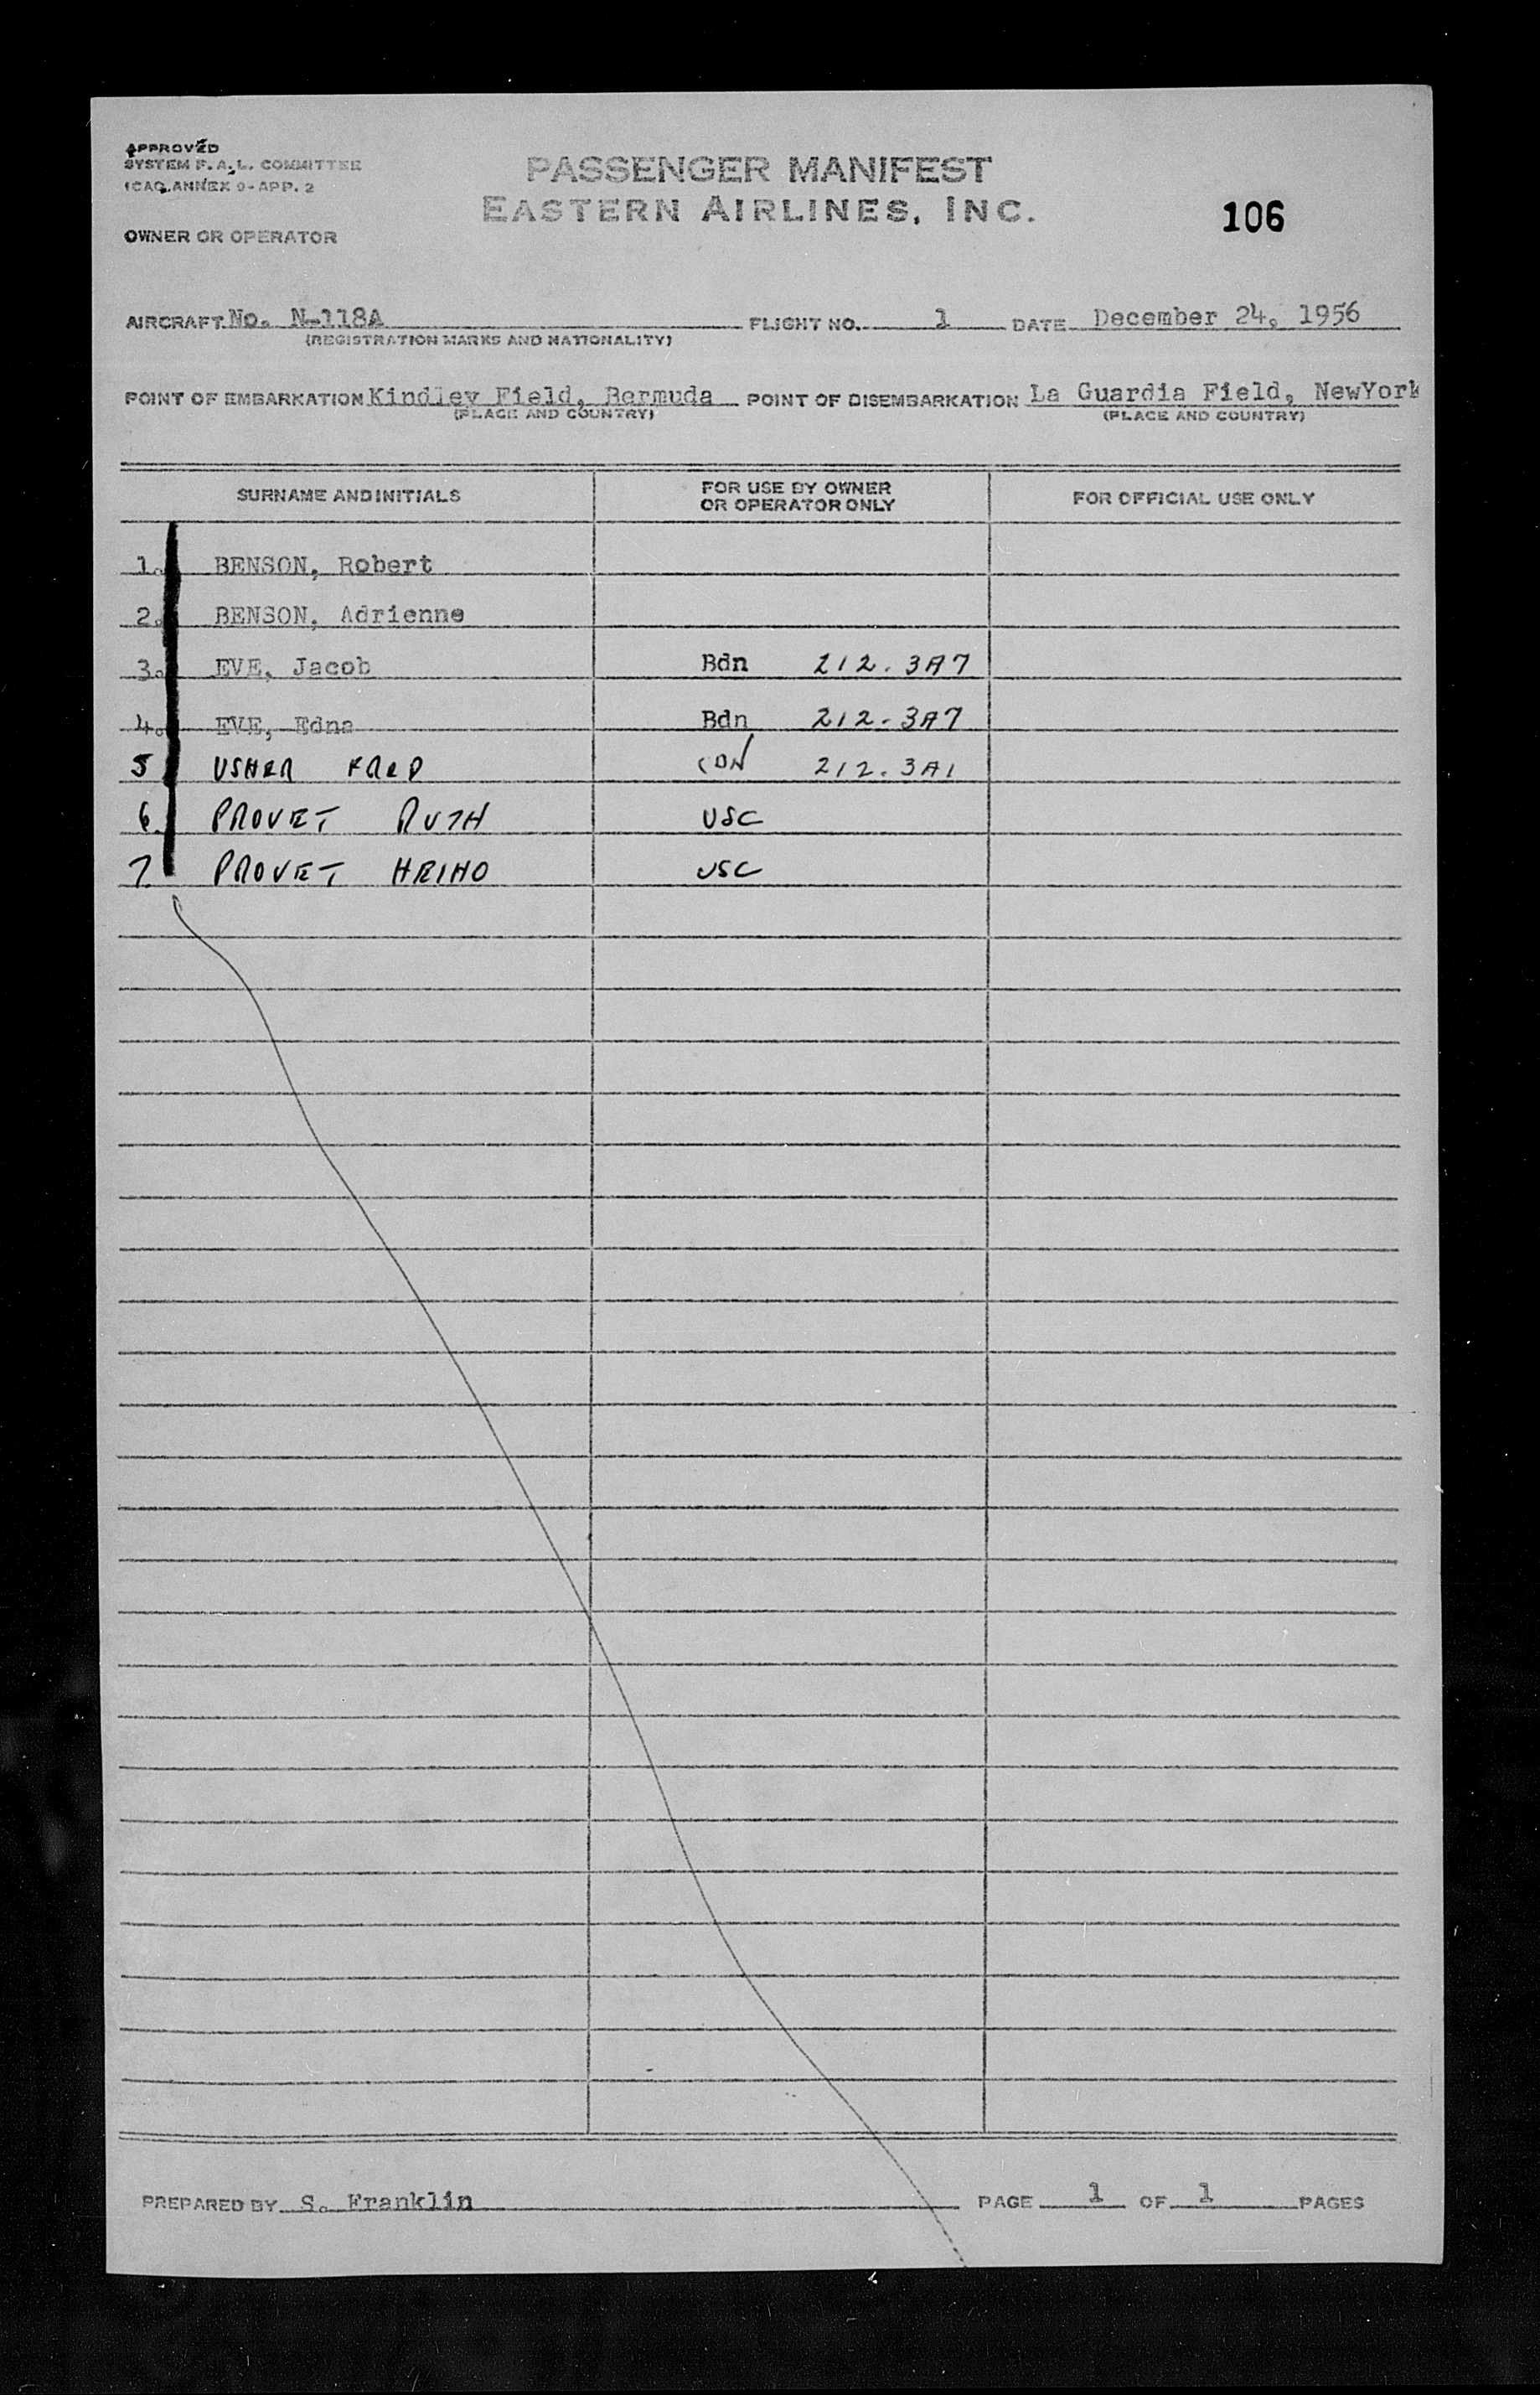 APPROVED
SYSTEM F.A.L. COMMITTEE
ICAO ANNEX 9-APP. 2
PASSENGER MANIFEST
EASTERN AIRLINES, INC.
106
OWNER OR OPERATOR
AIRCRAFT No. N-118A FLIGHT NO. 1 DATE December 24, 1956
(REGISTRATION MARKS AND NATIONALITY)
POINT OF EMBARKATION Kindley Field, Bermuda POINT OF DISEMBARKATION La Guardia Field, NewYork
(PLACE AND COUNTRY) (PLACE AND COUNTRY)
SURNAME AND INITIALS FOR USE BY OWNER OR OPERATOR ONLY FOR OFFICIAL USE ONLY
1. BENSON, Robert
2. BENSON, Adrienne
3. EVE, Jacob Bdn 212.3A7
4. EVE, Edna Bdn 212-3A7
5 USHER FRED CDN 212.3A1
6. PROVET RUTH USC
7. PROVET USC
PREPARED BY S. Franklin PAGE 1 OF 1 PAGES